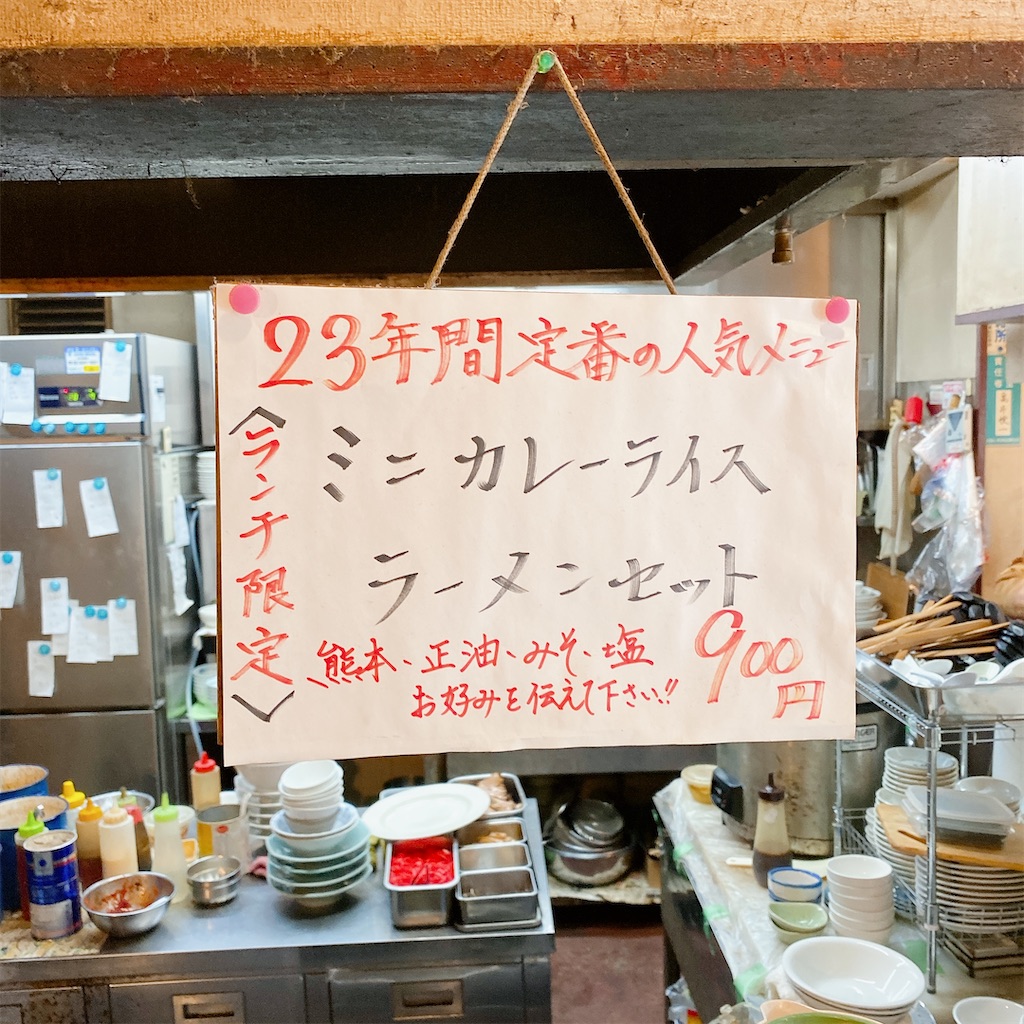 23年間定番の人気メニュー
〈ランチ限定〉
ミニカレーライス
ラーメンセット
熊本、正油、みそ、塩
お好みを伝えて下さい!!
900円